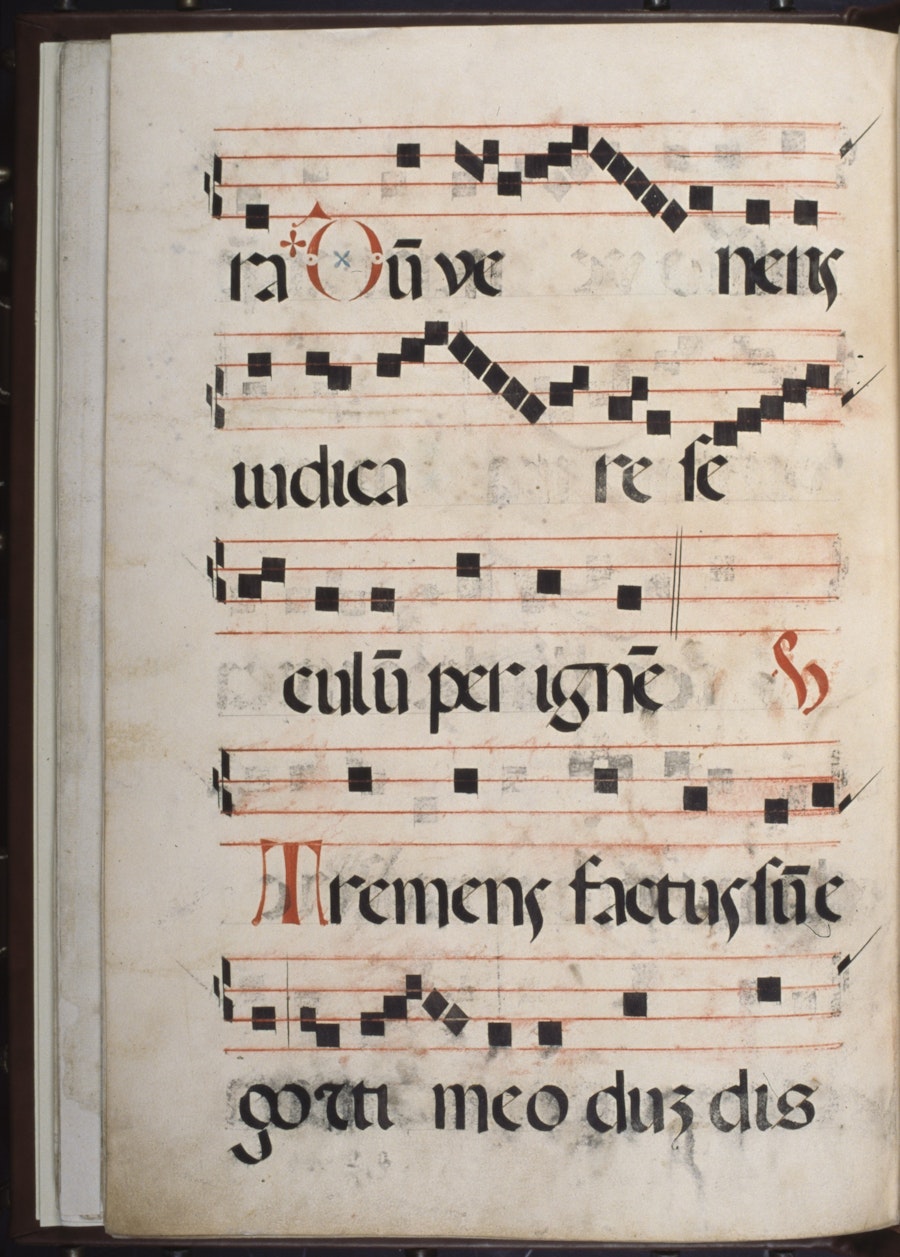 ra Dū ve nens
iudica re se
culū per ignē ℣
Tremens factus sū e
go et ti meo duꝫ dis